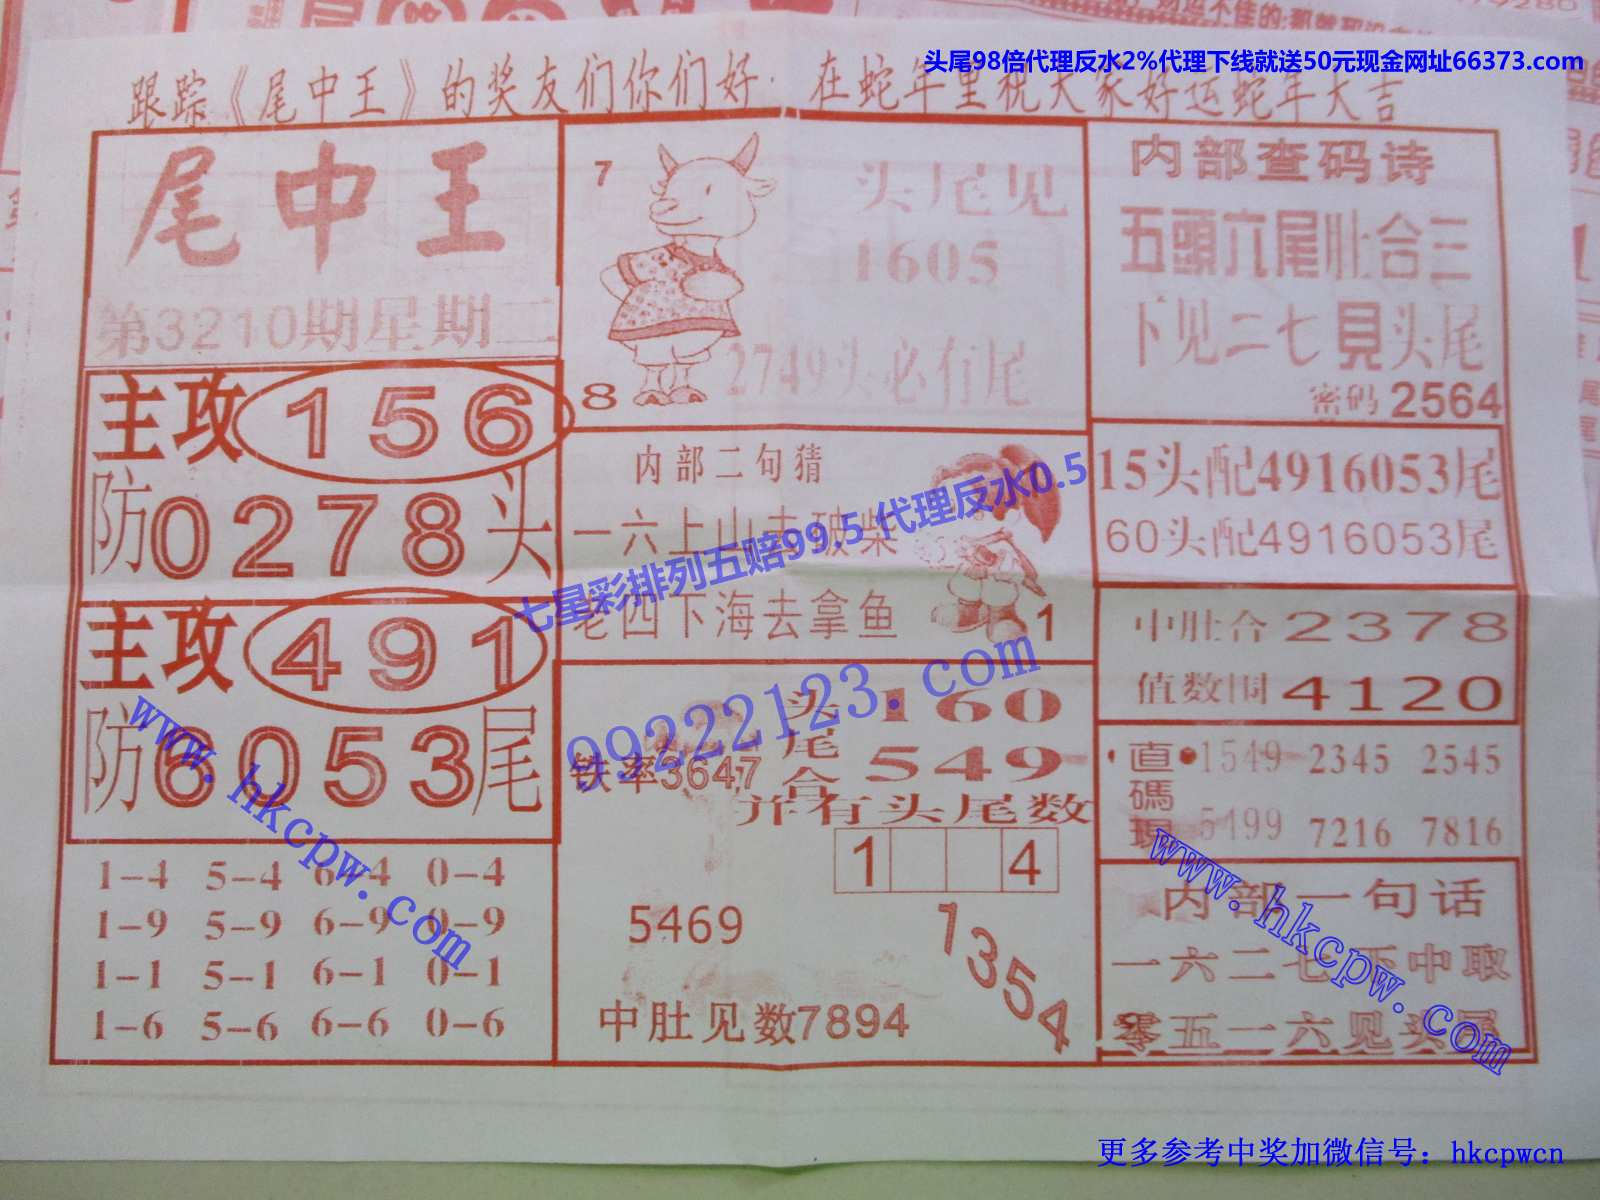 头尾98倍代理反水2%代理下线就送50元现金网址66373.com
跟踪《尾中王》的奖友们你们好：在蛇年里祝大家好运蛇年大吉
尾中王
第3210期星期二
主攻156
防0278头
主攻491
防6053尾
1-4 5-4 6-4 0-4
1-9 5-9 6-9 0-9
1-1 5-1 6-1 0-1
1-6 5-6 6-6 0-6
7
头尾见
1605
2749头必有尾
8
内部二句猜
一六上山去破柴
老四下海去拿鱼
1
铁率3647
头 160
尾
合 549
并有头尾数
1 4
5469
1354
中肚见数7894
内部查码诗
五頭六尾肚合三
下见二七見头尾
密码2564
15头配4916053尾
60头配4916053尾
中肚合2378
值数围4120
直碼現
1549 2345 2545
5499 7216 7816
内部一句话
一六二七下中取
零五一六见头尾
七星彩排列五赔99.5 代理反水0.5
99222123.com
www.hkcpw.com
www.hkcpw.com
更多参考中奖加微信号：hkcpwcn